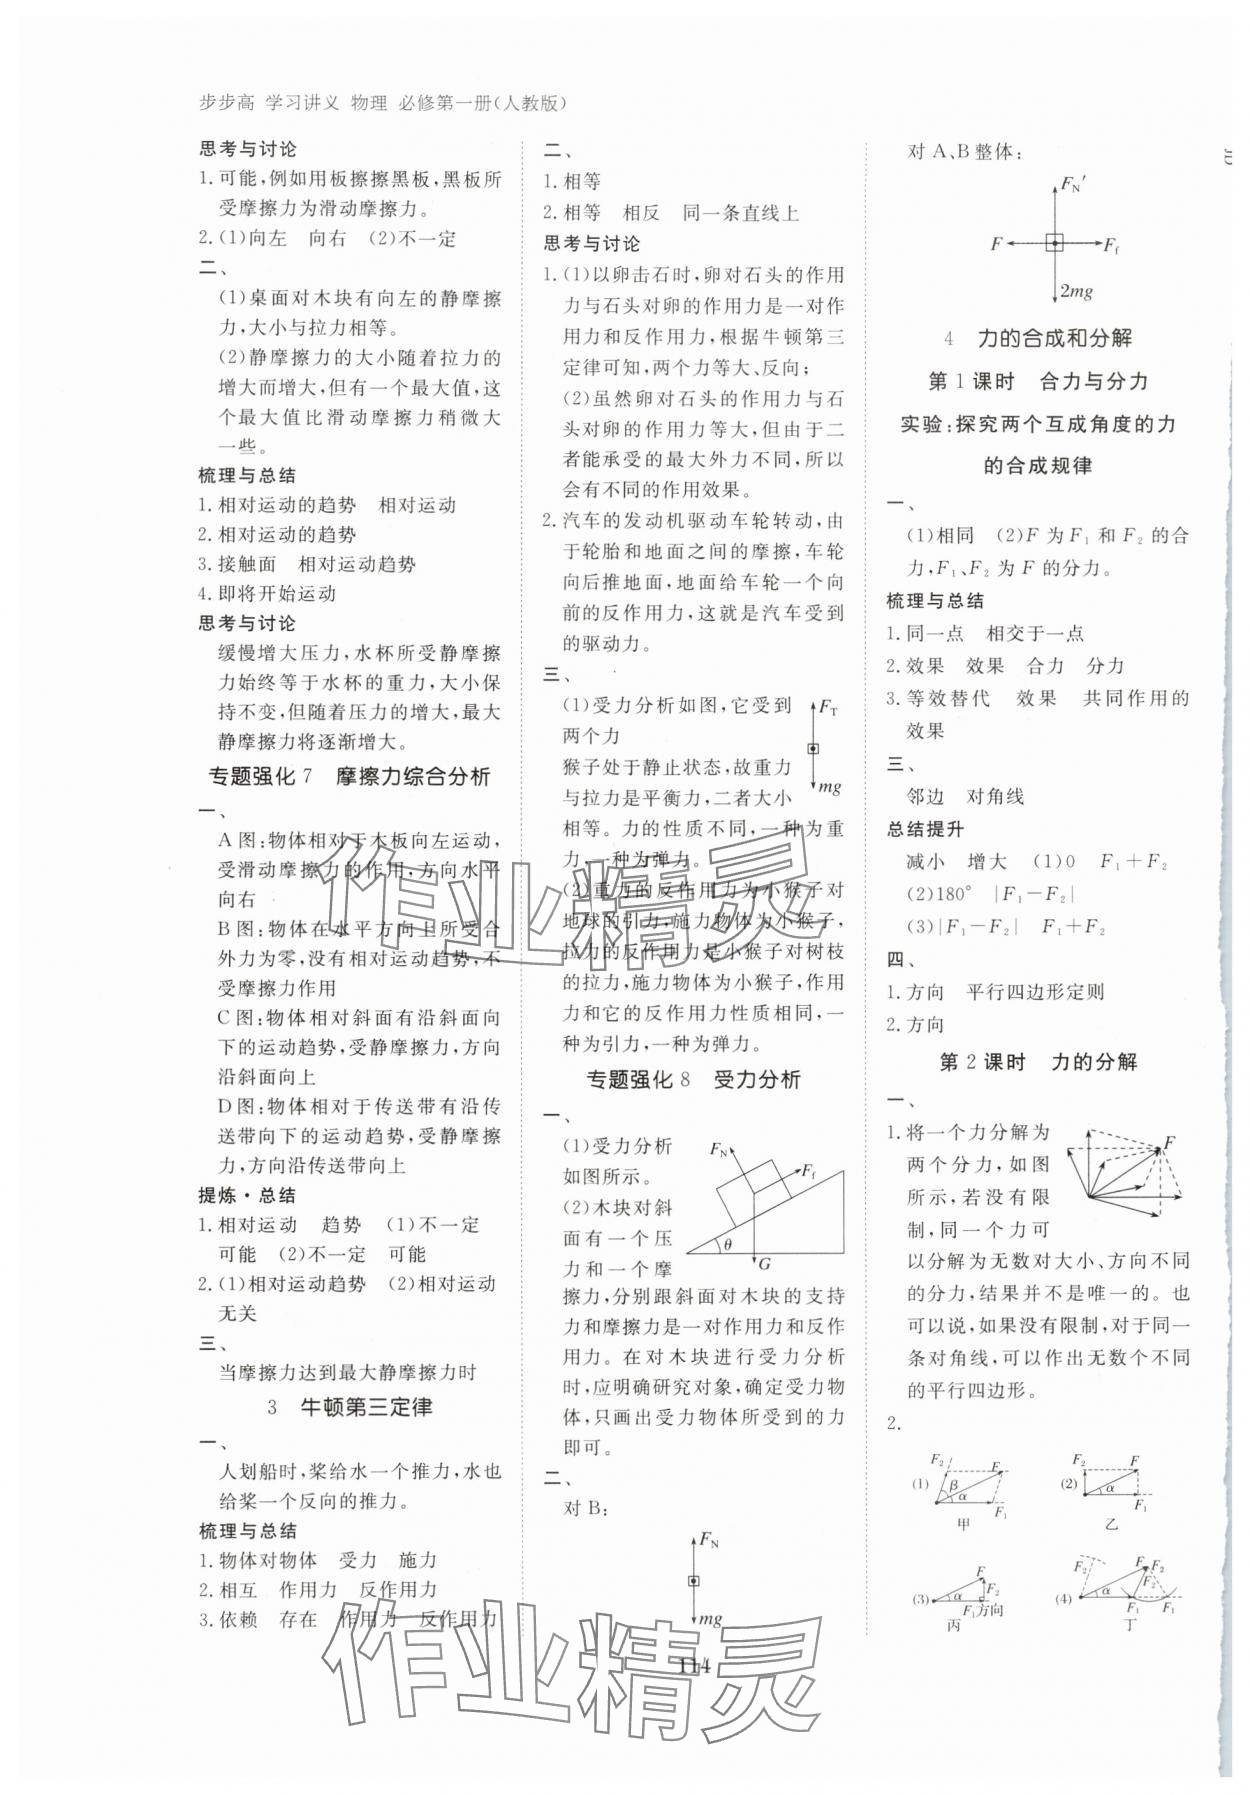 步步高 学习讲义 物理 必修第一册(人教版)
思考与讨论
1. 可能,例如用板擦擦黑板,黑板所
受摩擦力为滑动摩擦力。
2. (1)向左 向右 (2)不一定
二、
(1)桌面对木块有向左的静摩擦
力,大小与拉力相等。
(2)静摩擦力的大小随着拉力的
增大而增大,但有一个最大值,这
个最大值比滑动摩擦力稍微大
一些。
梳理与总结
1. 相对运动的趋势 相对运动
2. 相对运动的趋势
3. 接触面 相对运动趋势
4. 即将开始运动
思考与讨论
缓慢增大压力,水杯所受静摩擦
力始终等于水杯的重力,大小保
持不变,但随着压力的增大,最大
静摩擦力将逐渐增大。
专题强化7 摩擦力综合分析
一、
A图:物体相对于木板向左运动,
受滑动摩擦力的作用,方向水平
向右
B图:物体在水平方向上所受合
外力为零,没有相对运动趋势,不
受摩擦力作用
C图:物体相对斜面有沿斜面向
下的运动趋势,受静摩擦力,方向
沿斜面向上
D图:物体相对于传送带有沿传
送带向下的运动趋势,受静摩擦
力,方向沿传送带向上
提炼·总结
1. 相对运动 趋势 (1)不一定
可能 (2)不一定 可能
2. (1)相对运动趋势 (2)相对运动
无关
三、
当摩擦力达到最大静摩擦力时
3 牛顿第三定律
一、
人划船时,桨给水一个推力,水也
给桨一个反向的推力。
梳理与总结
1. 物体对物体 受力 施力
2. 相互 作用力 反作用力
3. 依赖 存在 作用力 反作用力
二、
1. 相等
2. 相等 相反 同一条直线上
思考与讨论
1. (1)以卵击石时,卵对石头的作用
力与石头对卵的作用力是一对作
用力和反作用力,根据牛顿第三
定律可知,两个力等大、反向;
(2)虽然卵对石头的作用力与石
头对卵的作用力等大,但由于二
者能承受的最大外力不同,所以
会有不同的作用效果。
2. 汽车的发动机驱动车轮转动,由
于轮胎和地面之间的摩擦,车轮
向后推地面,地面给车轮一个向
前的反作用力,这就是汽车受到
的驱动力。
三、
(1)受力分析如图,它受到
两个力
猴子处于静止状态,故重力
与拉力是平衡力,二者大小
相等。力的性质不同,一种为重
力,一种为弹力。
(2)重力的反作用力为小猴子对
地球的引力,施力物体为小猴子,
拉力的反作用力是小猴子对树枝
的拉力,施力物体为小猴子,作用
力和它的反作用力性质相同,一
种为引力,一种为弹力。
F_T
mg
专题强化8 受力分析
一、
(1)受力分析
如图所示。
(2)木块对斜
面有一个压
力和一个摩
擦力,分别跟斜面对木块的支持
力和摩擦力是一对作用力和反作
用力。在对木块进行受力分析
时,应明确研究对象,确定受力物
体,只画出受力物体所受到的力
即可。
F_N
F_f
θ
G
二、
对B:
F_N
mg
对A、B整体:
F_N′
F F_f
2mg
4 力的合成和分解
第1课时 合力与分力
实验:探究两个互成角度的力
的合成规律
一、
(1)相同 (2)F为F₁和F₂的合
力,F₁、F₂为F的分力。
梳理与总结
1. 同一点 相交于一点
2. 效果 效果 合力 分力
3. 等效替代 效果 共同作用的
效果
三、
邻边 对角线
总结提升
减小 增大 (1)0 F₁+F₂
(2)180° |F₁-F₂|
(3)|F₁-F₂| F₁+F₂
四、
1. 方向 平行四边形定则
2. 方向
第2课时 力的分解
一、
1. 将一个力分解为
两个分力,如图
所示,若没有限
制,同一个力可
以分解为无数对大小、方向不同
的分力,结果并不是唯一的。也
可以说,如果没有限制,对于同一
条对角线,可以作出无数个不同
的平行四边形。
F
2.
(1) F₂ F β α F₁ 甲
(2) F₂ F α F₁ 乙
(3) F F₂ α F₁方向 丙
(4) F₂ F F₂ α F₁ F₁ 丁
114
作业精灵
作业精灵